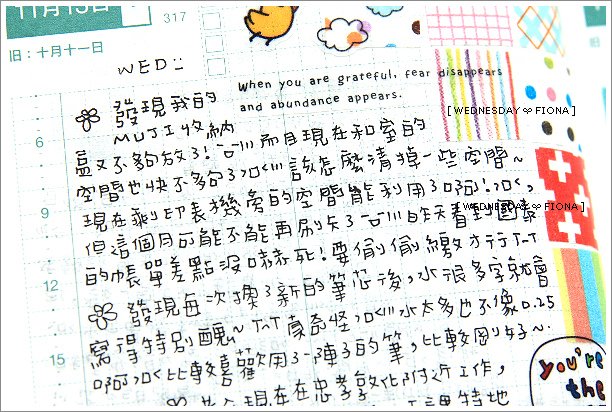 11月13日
317
旧：十月十一日
WED::
When you are grateful, fear disappears
and abundance appears.
[ WEDNESDAY FIONA ]
發現我的
MUJI收納
盒又不夠放了! 而且現在和室的
空間也快不夠了 該怎麼清掉一些空間~
現在剩印表機旁的空間能利用了啊!
[ WEDNESDAY FIONA ]
但這個月可能不能再刷卡了 昨天看到
的帳單差點沒嚇死! 要偷偷繳才行T-T
發現每次換了新的筆芯後, 水很多字就會
寫得特別醜~ T-T 真奇怪 水太多也不像0.25
啊 比較喜歡用了一陣子的筆, 比較剛好~
現在在忠孝敦化附近工作,
特地
6
9
12
15
you're
the